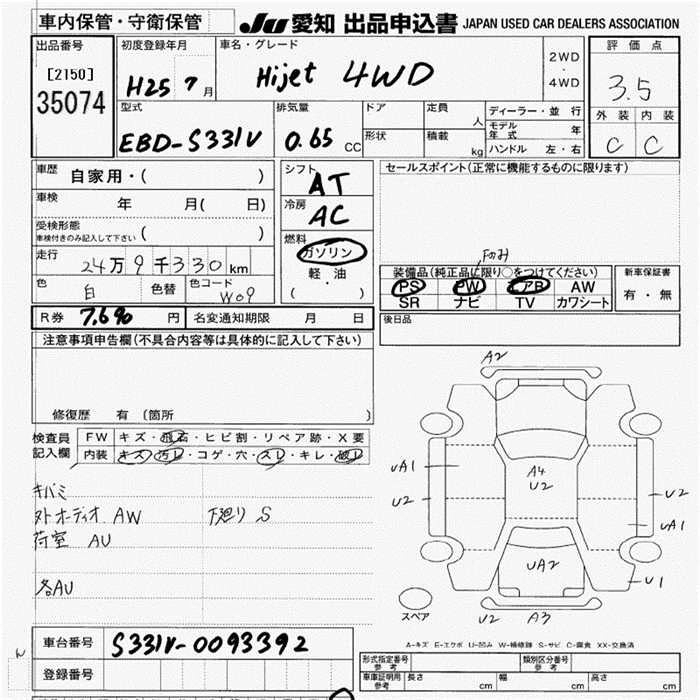 車内保管・守衛保管 JU 愛知 出品申込書 JAPAN USED CAR DEALERS ASSOCIATION
出品番号 初度登録年月 車名・グレード 評価点
[2150] H25 7月 Hijet 4WD 2WD・4WD 3.5
35074
型式 排気量 ドア 定員 人 ディーラー・並行 外装 内装
EBD-S331V 0.65 CC 形状 積載 kg モデル年式 年 C C
ハンドル 左・右
車歴 自家用・( ) シフト AT セールスポイント(正常に機能するものに限ります)
車検 年 月( 日) 冷房 AC
受検形態 車検付きのみ記入して下さい ( )
燃料 ガソリン
軽・油
( )
走行 24万9千330km
Fのみ
装備品(純正品に限り○をつけてください) 新車保証書
色 白 色替 色コード W09
PS PW エアB AW 有・無
SR ナビ TV カワシート
R券 7,690円 名変通知期限 月 日 後日品
注意事項申告欄(不具合内容等は具体的に記入して下さい)
修復歴 有 (箇所 )
検査員記入欄 FW キズ・飛石・ヒビ割・リペア跡・X要
内装 キズ・汚レ・コゲ・穴・スレ・キレ・破レ
キバミ
外オーディオ AW 下廻り S
荷室 AU
各AU
A2
UA1
U2
A4
U2
U2
UA1
UA2
U1
スペア
U2 A3
A-キズ E-エクボ U-凹み W-補修跡 S-サビ C-腐食 XX-交換済
車台番号 S331V-0093392
登録番号
形式指定番号 参考 類別区分番号 参考
車庫証明用 参考 長さ cm 幅 cm 高さ cm